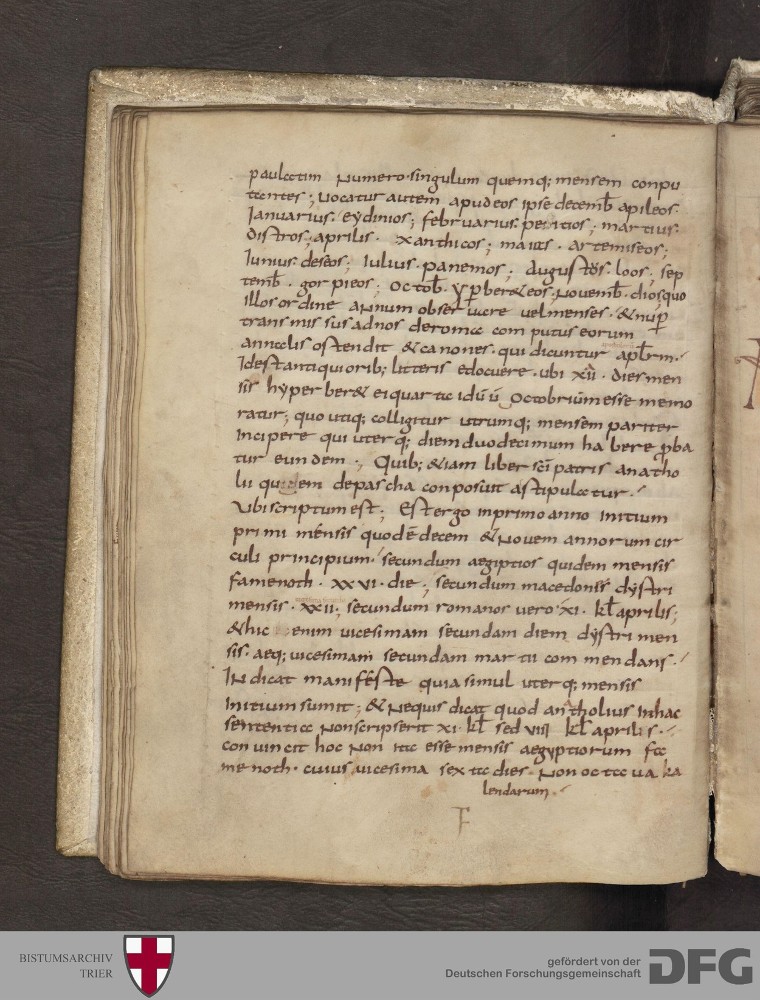 paulatim numero· singulum quemq; mensem conpu
tantes; uocatur autem apud eos ipse decemb̄ apileos·
Ianuarius· eydinios; februarius· peritios; martius·
distros; aprilis· xanthicos; maius· artemiseos;
Iunius· deseos; Iulius· panemos; Augustos· loos; sep
temb̄· gorpieos; octob̄· yꝑber&eos· Nouemb̄· dios; quo
illos ordine annum obseruare uel menses· & nuꝑ
transmissus ad nos de roma computus eorum
annalis ostendit & canones· qui dicuntur apl̄rm·
Id est antiquiorib; litteris edocuere· ubi xii· dies men
sis hyperber& ei quarta iduū octobrium esse memo
ratur; quo utiq; colligitur utrumq; mensem pariter
Incipere qui uterq; diem duodecimum habere ꝓba
tur eundem; Quib; & iam liber sc̄i patris anatho
lii quidem de pascha conposuit astipulatur·
Ubi scriptum est; Est ergo in primo anno Initium
primi mensis quod ē decem & Nouem annorum cir
culi principium· secundum aegiptios quidem mensis
famenoth· xxvi· die; secundum macedonis dystri
mensis· xxii; secundum romanos uero· xi· kl̄ aprilis;
& hic enim uicesimam secundam diem dystri men
sis· aeq; uicesimam secundam martii commendans·
Indicat manifeste quia simul uterq; mensis
Initium sumit; & Nequis dicat quod anatholius In hac
sententia Non scripserit xi· kl̄ sed viii kl̄ aprilis·
conuincit hoc Non ita esse mensis aegyptiorum fa
menoth· cuius uicesima sexta dies· Non octaua ka
lendarum·
BISTUMSARCHIV
TRIER
gefördert von der
Deutschen Forschungsgemeinschaft
DFG